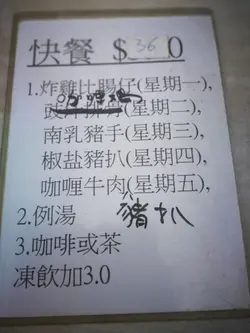 快餐 $36.0
1.炸雞比腸仔(星期一),
豉汁排骨(星期二),
南乳豬手(星期三),
椒盐豬扒(星期四),
咖喱牛肉(星期五),
豬扒
2.例湯
3.咖啡或茶
凍飲加3.0